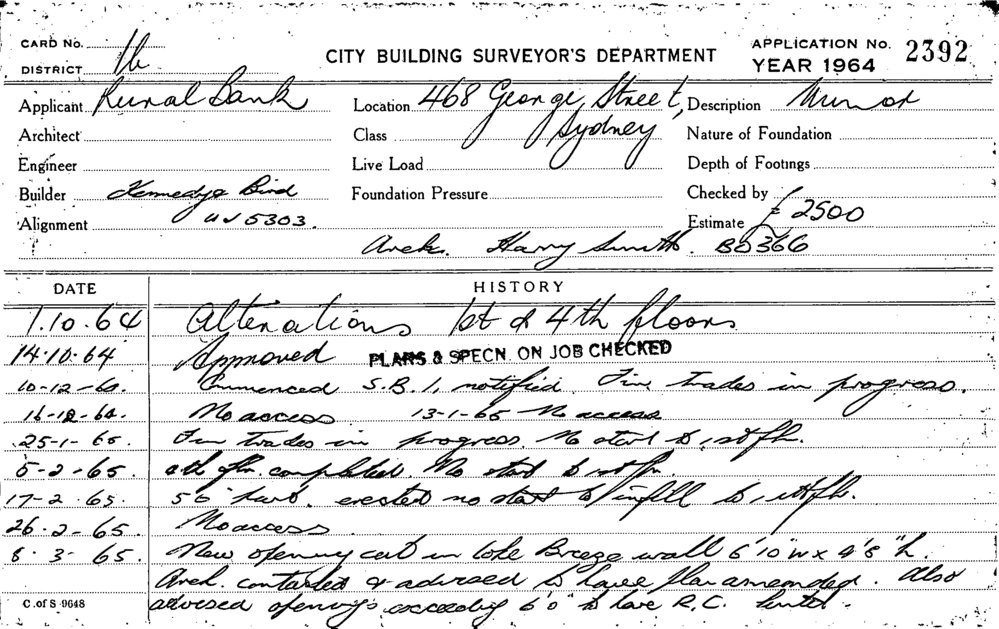 CITY BUILDING SURVEYOR'S DEPARTMENT
CARD No.
DISTRICT 16
APPLICATION No. 2392
YEAR 1964
Applicant Rural Bank
Location 468 George Street, Sydney
Description Minor
Architect
Class
Nature of Foundation
Engineer
Live Load
Depth of Footings
Builder Kennedy & Bird
Foundation Pressure
Checked by
Alignment UJ5303.
Estimate £2500
Arch. Harry Smith. BO366
DATE HISTORY
1.10.64 Alterations 1st & 4th floors
14.10.64 Approved PLANS & SPECN. ON JOB CHECKED
10-12-64. Commenced S.B.I. notified Fin trades in progress.
16-12-64. No access 13-1-65 No access
25-1-65. Fin trades in progress. No start to 1st flr.
5-2-65. 4th flr. completed. No start to 1st flr.
17-2.65. erected no start to infill to 1st flr.
26.2-65. No access
8.3.65. New opening cut in Coke Breeze wall 6'10"w x 4'8"h.
Arch. contacted & advised to have plan amended. Also
advised opening's exceeding 6'0" to have R.C. lintel.
C. of S 9648